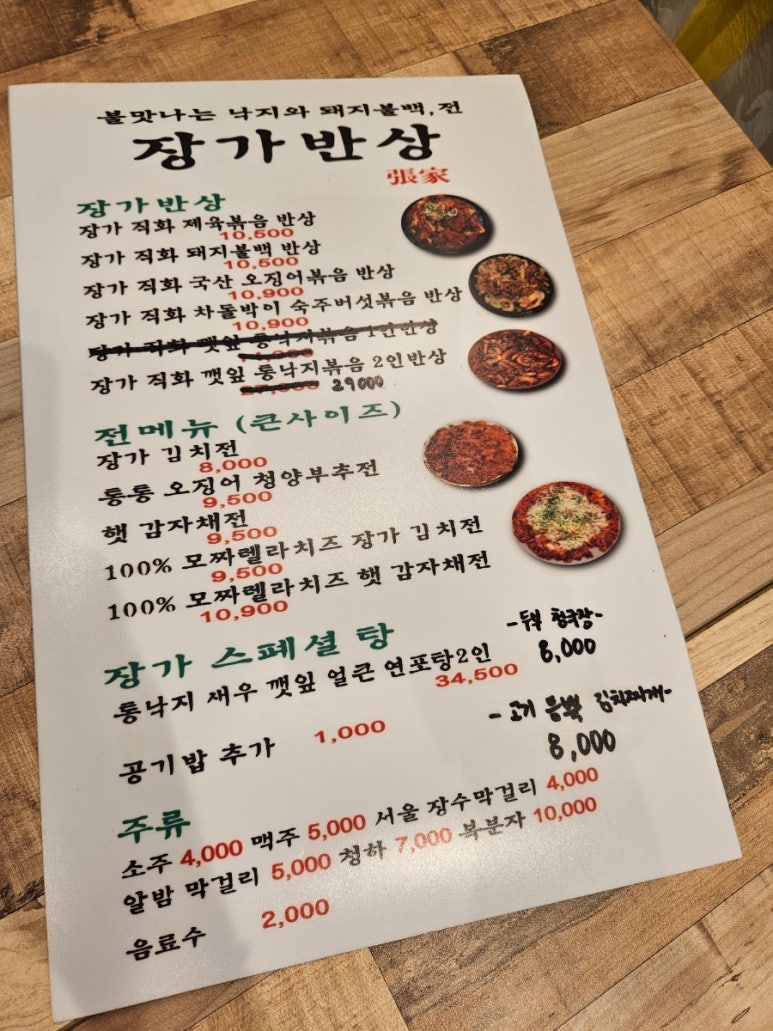 불맛나는 낙지와 돼지불백,전
장가반상
張家
장가반상
장가 직화 제육볶음 반상
10,500
장가 직화 돼지불백 반상
10,500
장가 직화 국산 오징어볶음 반상
10,900
장가 직화 차돌박이 숙주버섯볶음 반상
10,900
장가 직화 깻잎 통낙지볶음 1인반상
장가 직화 깻잎 통낙지볶음 2인반상
29000
전메뉴 (큰사이즈)
장가 김치전
8,000
통통 오징어 청양부추전
9,500
햇 감자채전
9,500
100% 모짜렐라치즈 장가 김치전
9,500
100% 모짜렐라치즈 햇 감자채전
10,900
장가 스페셜 탕
통낙지 새우 깻잎 얼큰 연포탕2인
34,500
-두부 청국장-
8,000
공기밥 추가 1,000
-고기 듬뿍 김치찌개-
8,000
주류
소주 4,000 맥주 5,000 서울 장수막걸리 4,000
알밤 막걸리 5,000 청하 7,000 복분자 10,000
음료수 2,000